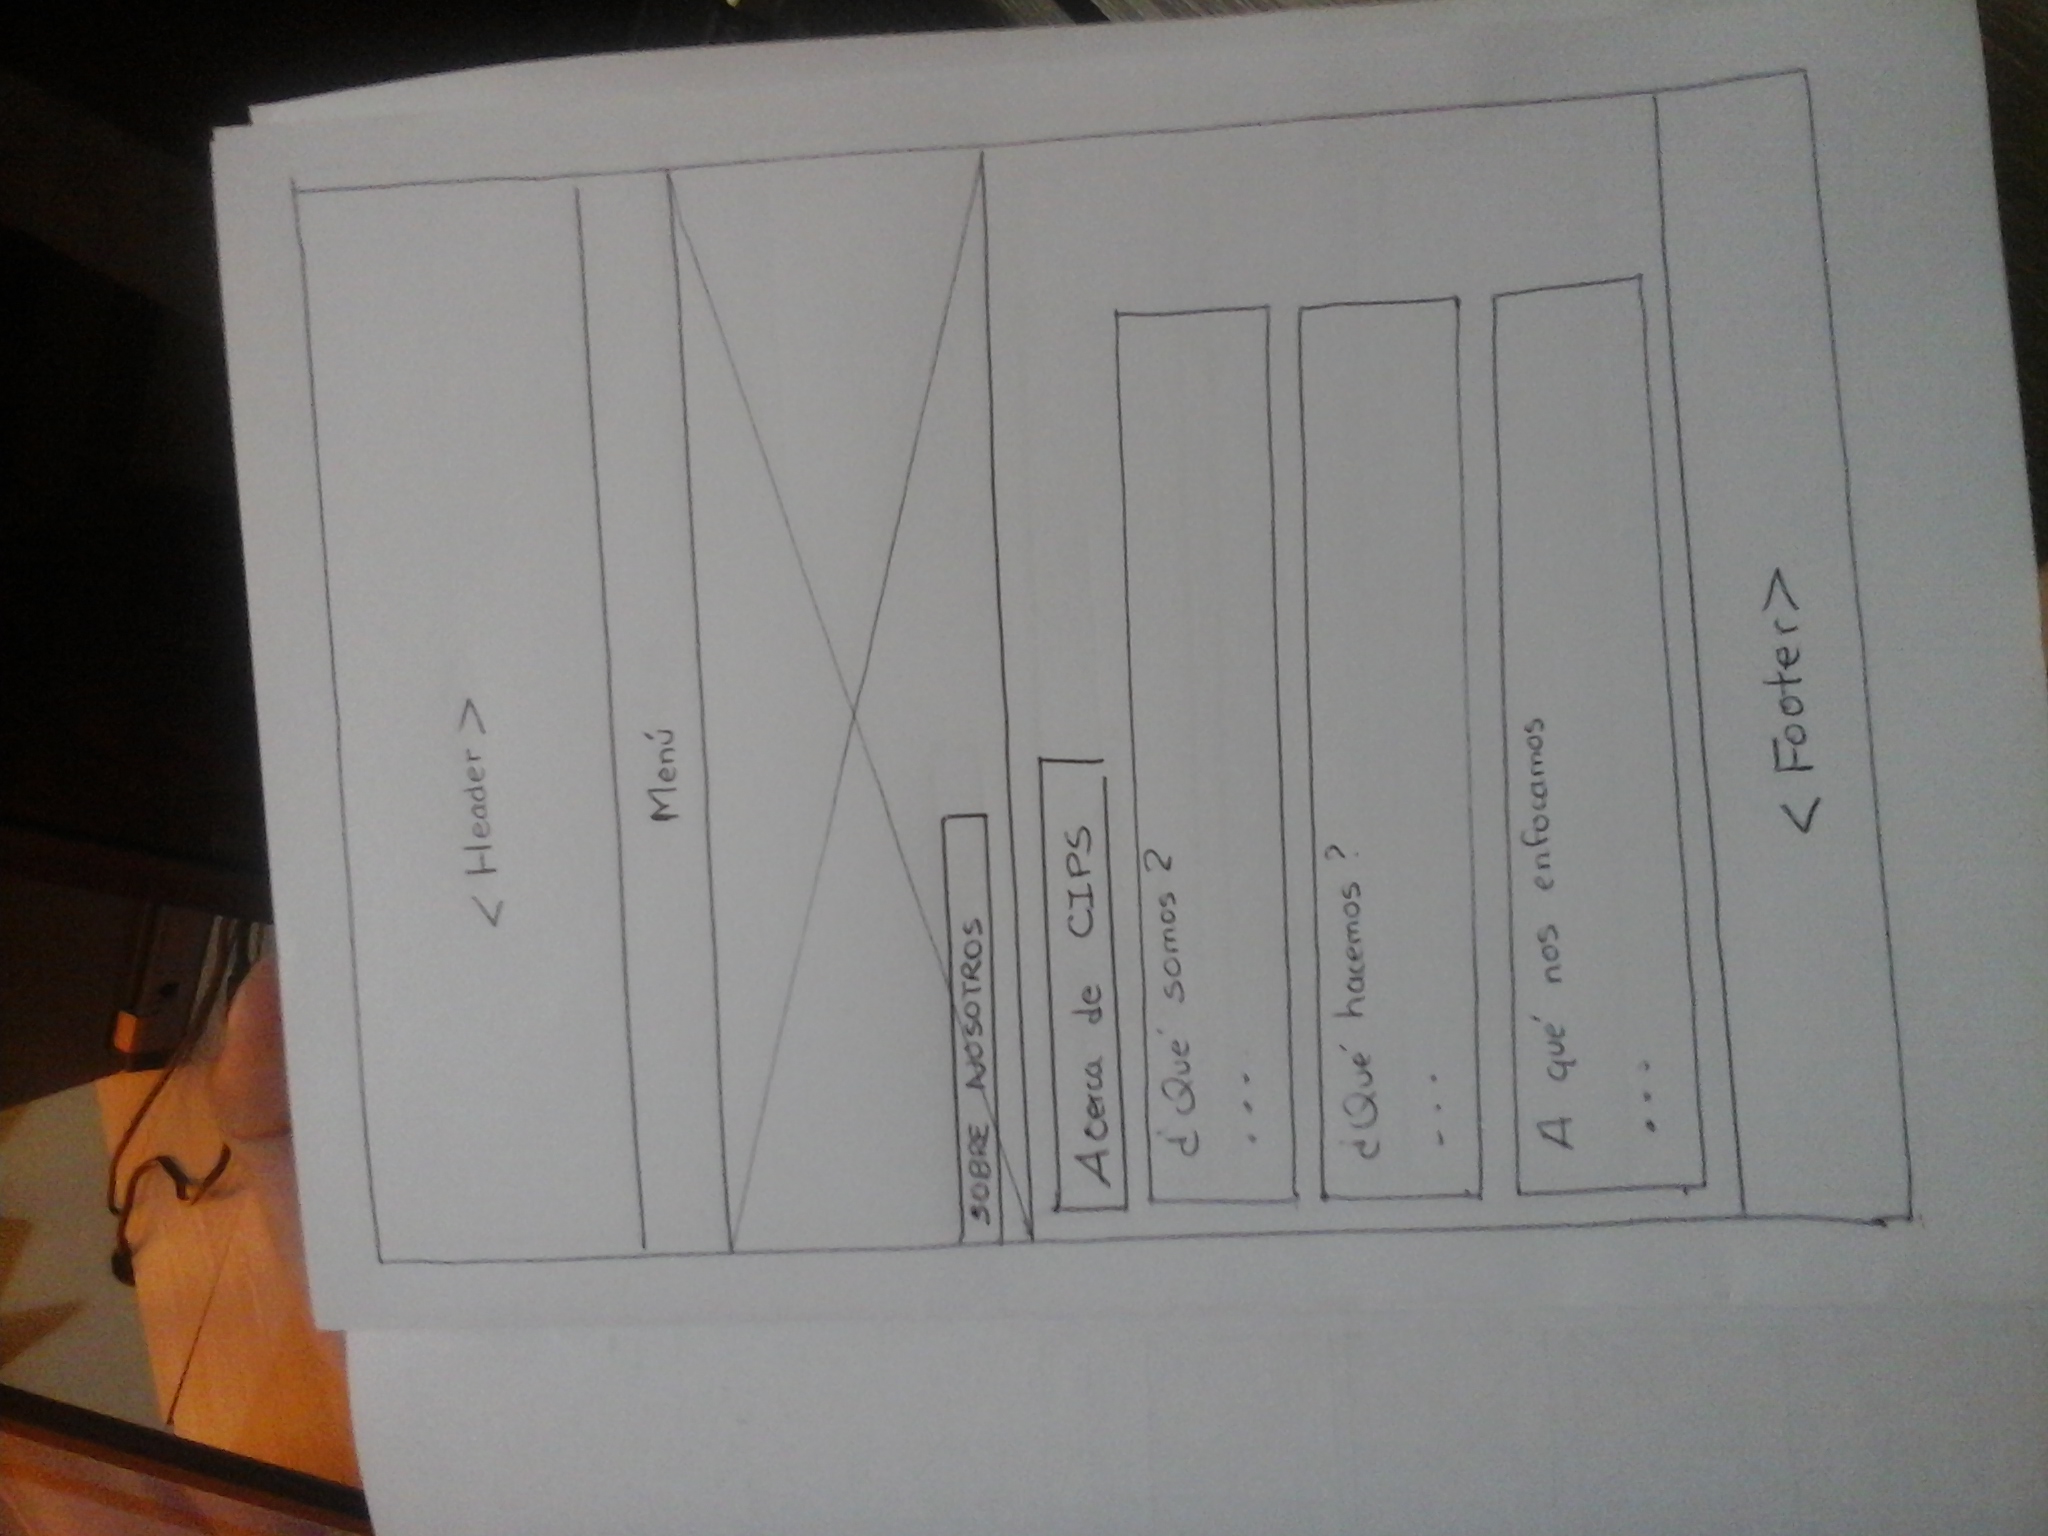 < Header >
Menú
SOBRE NOSOTROS
Acerca de CIPS
¿Qué somos?
...
¿Qué hacemos?
...
A qué nos enfocamos
...
< Footer >